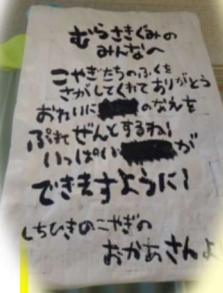 むらさきぐみの
みんなへ
こやぎたちのふくを
さがしてくれておりがとう
おれいに のなえを
ぷれぜんとするね!
いっぱい が
できますように!
しちひきのこやぎの
おかあさんよ